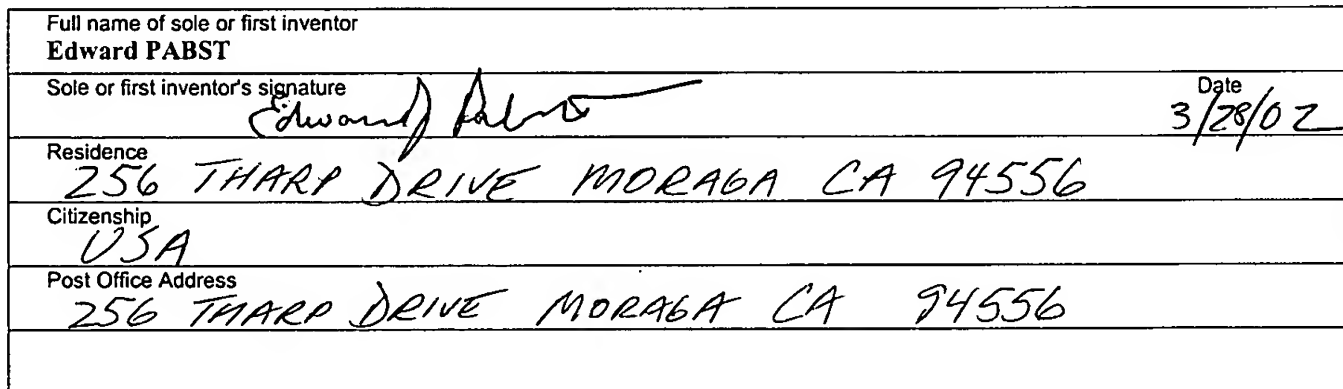 Full name of sole or first inventor
Edward PABST
Sole or first inventor's signature
Date
Edward J Pabst
3/28/02
Residence
256 THARP DRIVE MORAGA CA 94556
Citizenship
USA
Post Office Address
256 THARP DRIVE MORAGA CA 94556